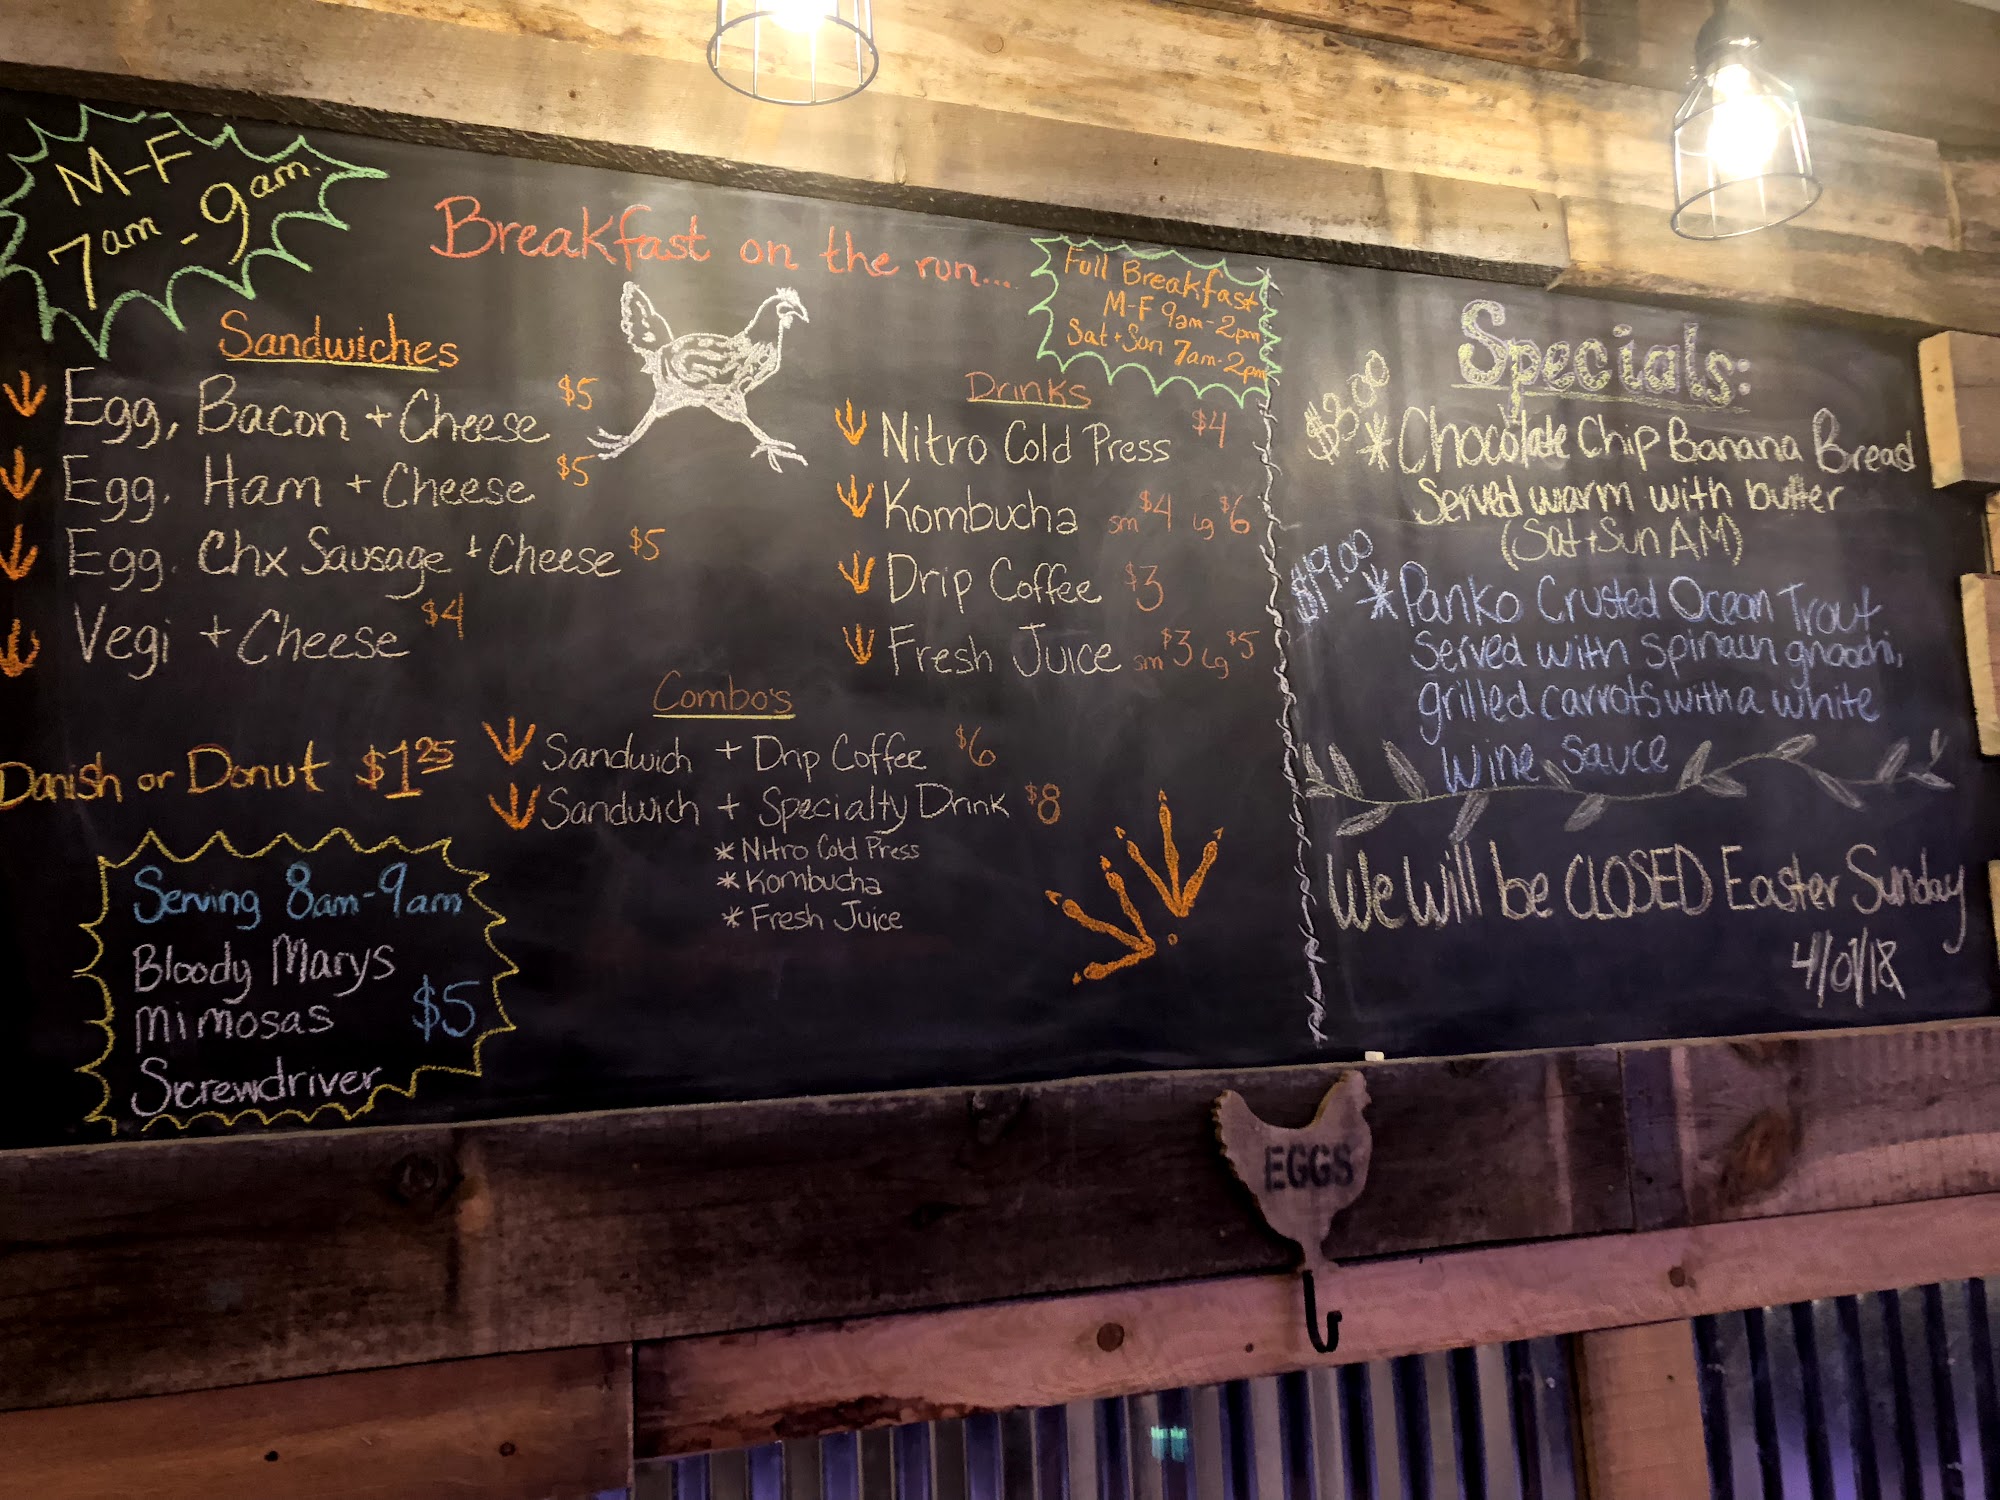 M-F
7am - 9am.
Breakfast on the run...
Full Breakfast
M-F 9am-2pm
Sat + Sun 7am-2pm
Sandwiches
Egg, Bacon + Cheese $5
Egg. Ham + Cheese $5
Egg. Chx Sausage + Cheese $5
Vegi + Cheese $4
Danish or Donut $1.25
Serving 8am-9am
Bloody Marys
Mimosas $5
Screwdriver
Drinks
Nitro Cold Press $4
Kombucha sm $4 Lg $6
Drip Coffee $3
Fresh Juice sm $3 Lg $5
Combo's
Sandwich + Drip Coffee $6
Sandwich + Specialty Drink $8
* Nitro Cold Press
* Kombucha
* Fresh Juice
Specials:
$3.00 * Chocolate Chip Banana Bread
Served warm with butter
(Sat + Sun AM)
$19.00 * Panko Crusted Ocean Trout
Served with spinach gnocchi,
grilled carrots with a white
wine sauce
We will be CLOSED Easter Sunday
4/01/18
EGGS